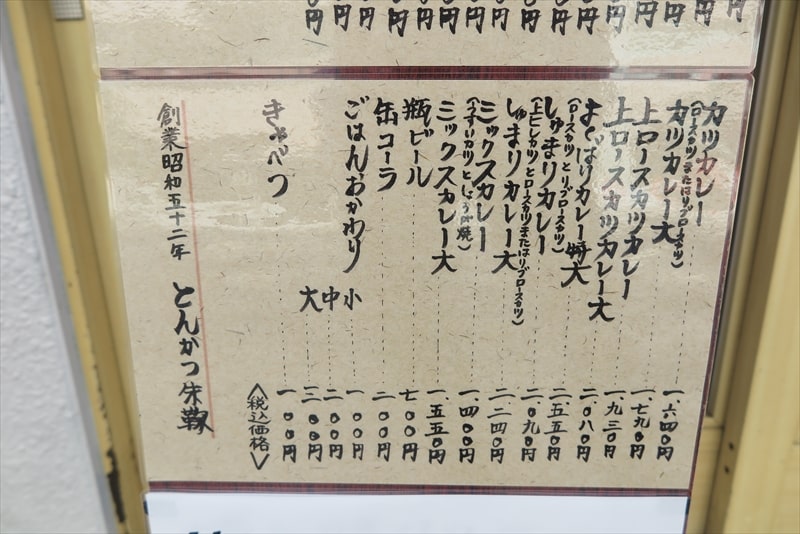 カツカレー 一、六四〇円
(ロースカツまたはリブロースカツ)
カツカレー大 一、七九〇円
上ロースカツカレー 一、九三〇円
上ロースカツカレー大 二、〇八〇円
よくばりカレー特大 二、五五〇円
(ロースカツとリブロースカツ)
しゅまりカレー 二、〇九〇円
(上ヒレカツとロースカツまたはリブロースカツ)
しゅまりカレー大 二、二四〇円
ミックスカレー 一、四〇〇円
(うすいカツとしょうが焼)
ミックスカレー大 一、五五〇円
瓶ビール 七〇〇円
缶コーラ 二〇〇円
ごはんおかわり 小 一〇〇円
中 二〇〇円
大 三〇〇円
きゃべつ 一〇〇円
〈税込価格〉
創業昭和五十二年 とんかつ朱鞠